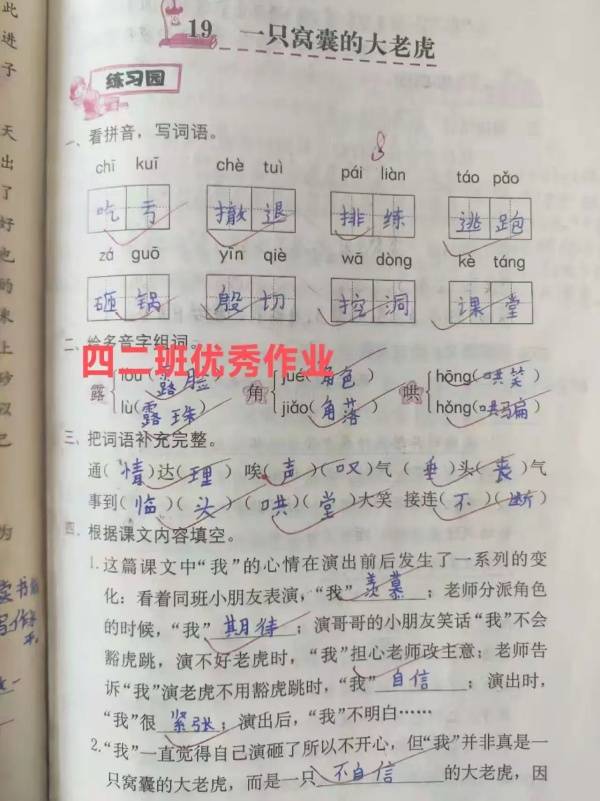 19 一只窝囊的大老虎
练习园
一、看拼音，写词语。
chī kuī chè tuì pái liàn táo pǎo
吃亏 撤退 排练 逃跑
zá guō yīn qiè wā dòng kè táng
砸锅 殷切 挖洞 课堂
二、给多音字组词。
四二班优秀作业
露 lòu(露脸) 角 jué(角色) 哄 hōng(哄笑)
lù(露珠) jiǎo(角落) hǒng(哄骗)
三、把词语补充完整。
通(情)达(理) 唉(声)(叹)气 (垂)头(丧)气
事到(临)(头) (哄)(堂)大笑 接连(不)(断)
四、根据课文内容填空。
1.这篇课文中“我”的心情在演出前后发生了一系列的变
化：看着同班小朋友表演，“我”羡慕；老师分派角色
的时候，“我”期待；演哥哥的小朋友笑话“我”不会
豁虎跳，演不好老虎时，“我”担心老师改主意；老师告
诉“我”演老虎不用豁虎跳时，“我”自信；演出时，
“我”很紧张；演出后，“我”不明白……
2.“我”一直觉得自己演砸了所以不开心，但“我”并非真是一
只窝囊的大老虎，而是一只不自信的大老虎，因
此
进
子
天
出
了
好
也
的
来
上
砂
以
己
为